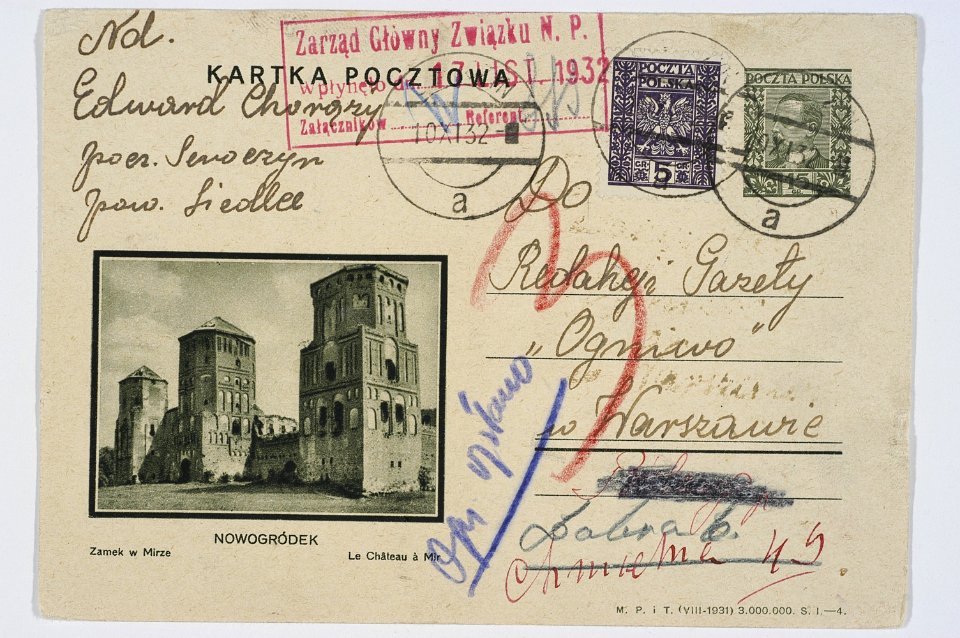 Nd.
Edward Chorąży
pocz. Seroczyn
pow. Siedlce
KARTKA POCZTOWA
Zarząd Główny Związku N. P.
Wpłynęło d. 17 LIST 1932
Załączników Referent
10 XI 32
a
POCZTA
POLSKA
GR 5 GR
a
POCZTA POLSKA
15
10 XI 32
a
Do
Redakcji Gazety
„Ogniwo"
w Warszawie
Dobra 6.
Chmielna 49
NOWOGRÓDEK
Zamek w Mirze Le Château à Mir
M. P. i T. (VIII-1931) 3.000.000. S. I.—4.